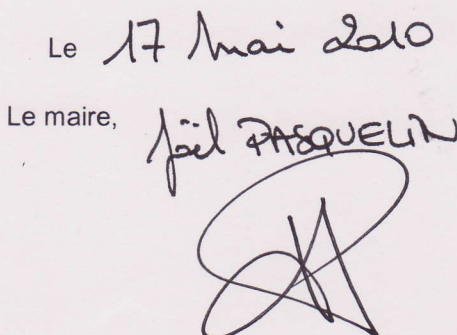 Le 17 mai 2010
Le maire, Joël PASQUELIN